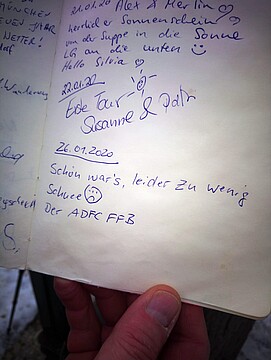 MÜNCHEN
WETTER!
21.01.20 Alex & Merlin
herrlicher Sonnenschein
von der Suppe in die Sonne
LG an die unten
Hallo Silvia
22.01.20
Tour
Susanne &
26.01.2020
Schön war's, leider zu wenig
Schnee
Der ADFC FFB